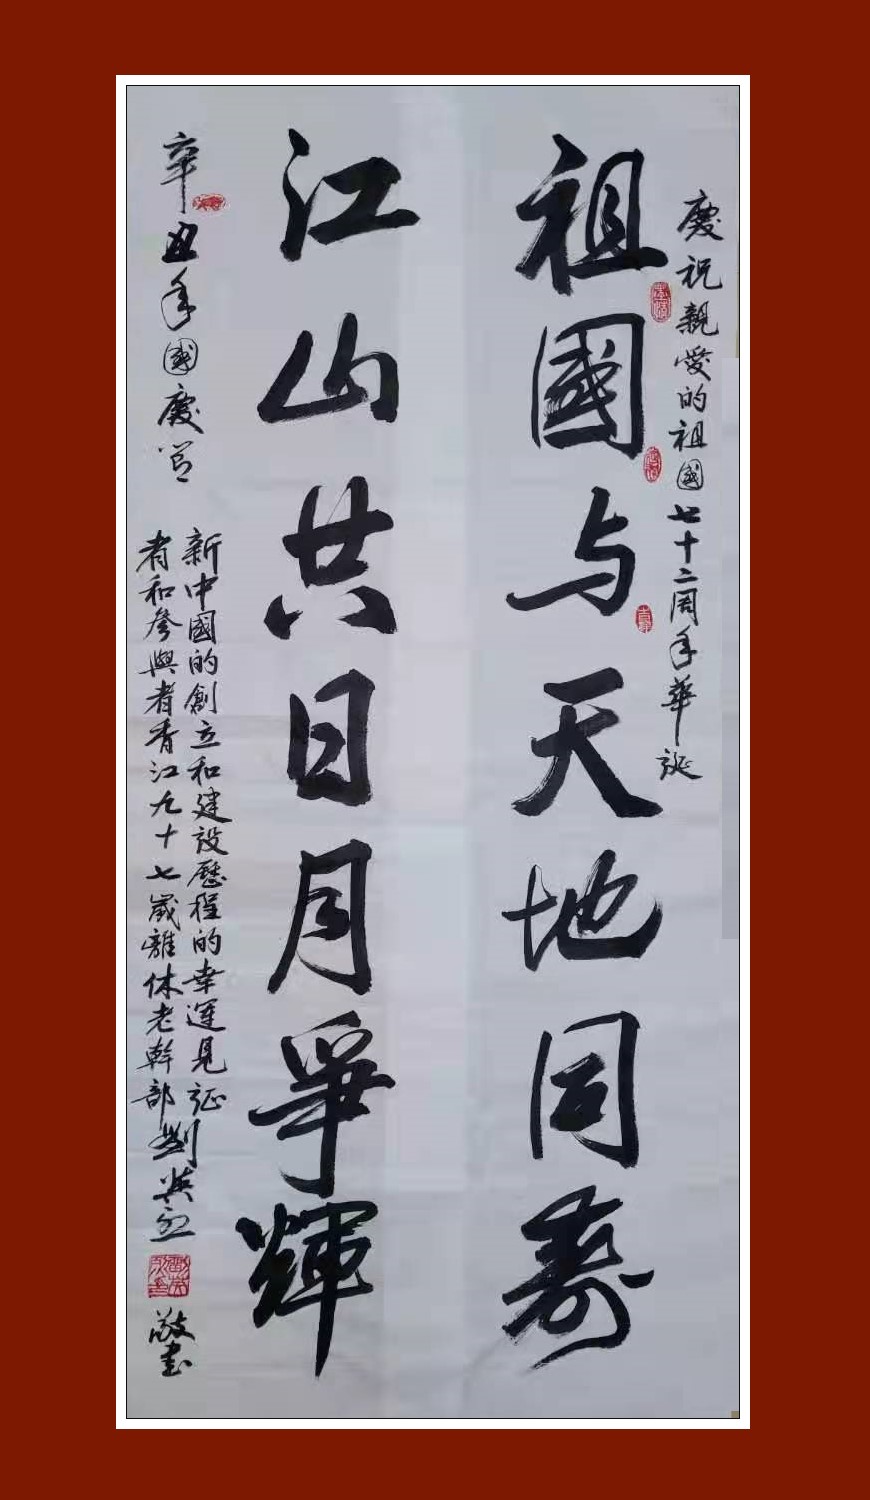 慶祝親愛的祖國七十二周年華誕
祖國与天地同壽
江山共日月爭輝
辛丑年國慶節
新中國的創立和建設歷程的幸運見証
者和參與者香江九十七歲離休老幹部劉
敬書